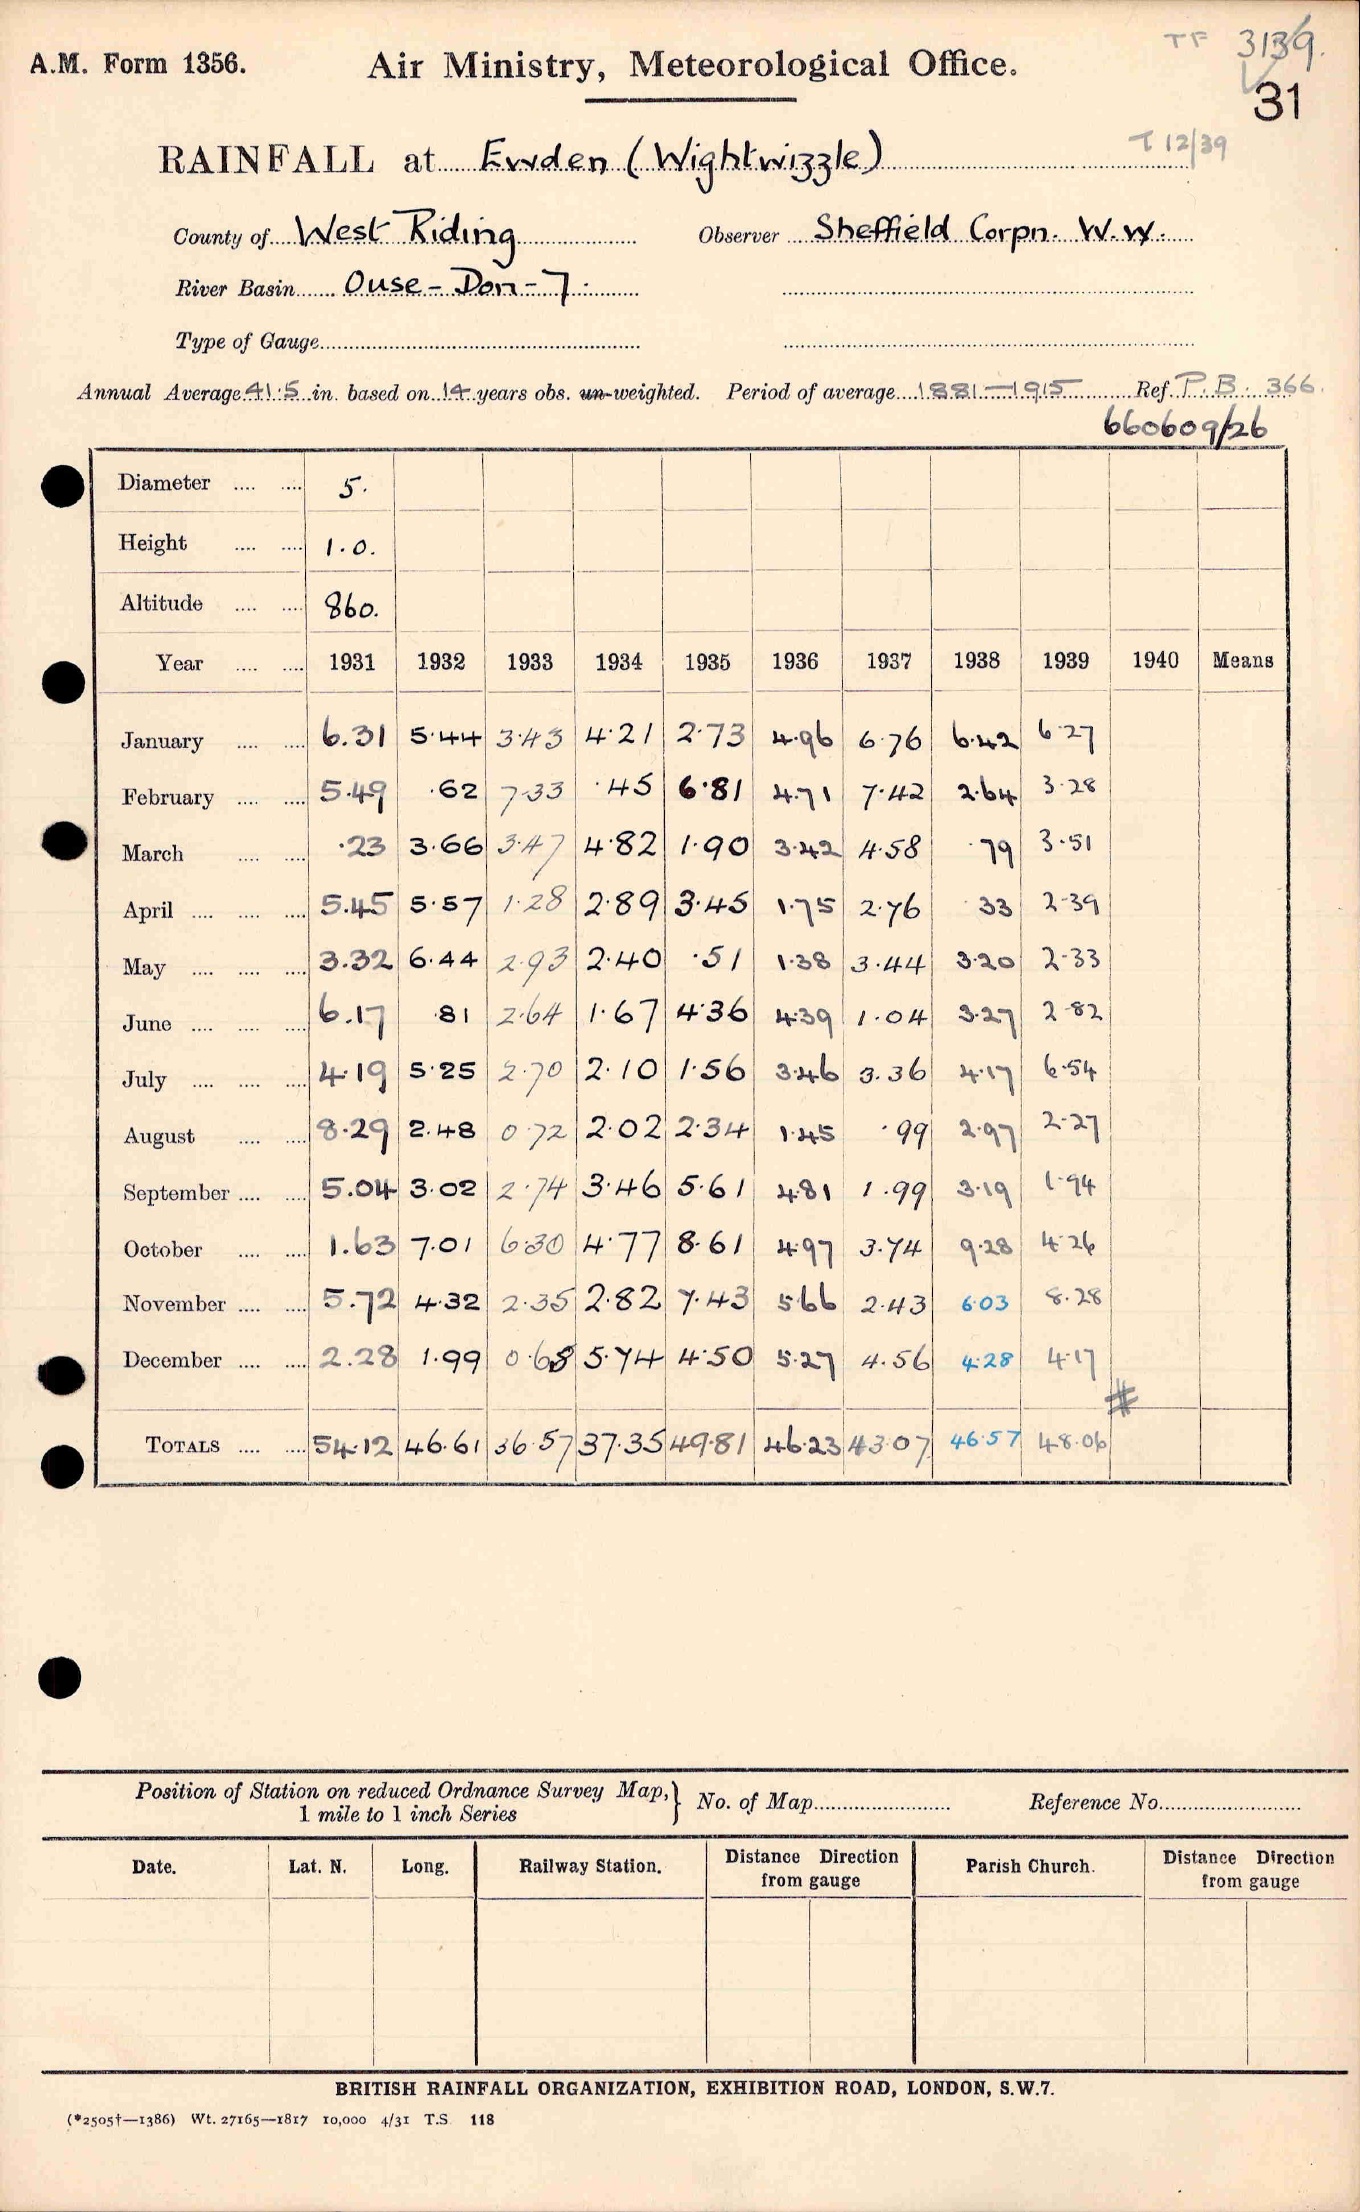 TF 3139.
A.M. Form 1356. Air Ministry, Meteorological Office.
31
RAINFALL at Ewden (Wightwizzle) T 12/39
County of West Riding Observer Sheffield Corpn. W.W.
River Basin Ouse - Don - 7.
Type of Gauge
Annual Average 41.5 in. based on 14 years obs. un-weighted. Period of average 1881-1915 Ref. P.B. 366.
660609/26
Diameter .... .... 5.
Height .... .... 1.0.
Altitude .... .... 860.
Year .... .... 1931 1932 1933 1934 1935 1936 1937 1938 1939 1940 Means
January .... .... 6.31 5.44 3.43 4.21 2.73 4.96 6.76 6.42 6.27
February .... .... 5.49 .62 7.33 .45 6.81 4.71 7.42 2.64 3.28
March .... .... .23 3.66 3.47 4.82 1.90 3.42 4.58 .79 3.51
April .... .... .... 5.45 5.57 1.28 2.89 3.45 1.75 2.76 .33 2.39
May .... .... .... 3.32 6.44 2.93 2.40 .51 1.38 3.44 3.20 2.33
June .... .... .... 6.17 .81 2.64 1.67 4.36 4.39 1.04 3.27 2.82
July .... .... .... 4.19 5.25 2.70 2.10 1.56 3.46 3.36 4.17 6.54
August .... .... 8.29 2.48 0.72 2.02 2.34 1.45 .99 2.97 2.27
September .... .... 5.04 3.02 2.74 3.46 5.61 4.81 1.99 3.19 1.94
October .... .... 1.63 7.01 6.30 4.77 8.61 4.97 3.74 9.28 4.26
November .... .... 5.72 4.32 2.35 2.82 7.43 5.66 2.43 6.03 8.28
December .... .... 2.28 1.99 0.68 5.74 4.50 5.27 4.56 4.28 4.17
#
TOTALS .... .... 54.12 46.61 36.57 37.35 49.81 46.23 43.07 46.57 48.06
Position of Station on reduced Ordnance Survey Map, } No. of Map Reference No.
1 mile to 1 inch Series
Date. Lat. N. Long. Railway Station. Distance Direction from gauge Parish Church. Distance Direction from gauge
BRITISH RAINFALL ORGANIZATION, EXHIBITION ROAD, LONDON, S.W.7.
(*2505†—1386) Wt. 27165—1817 10,000 4/31 T.S. 118